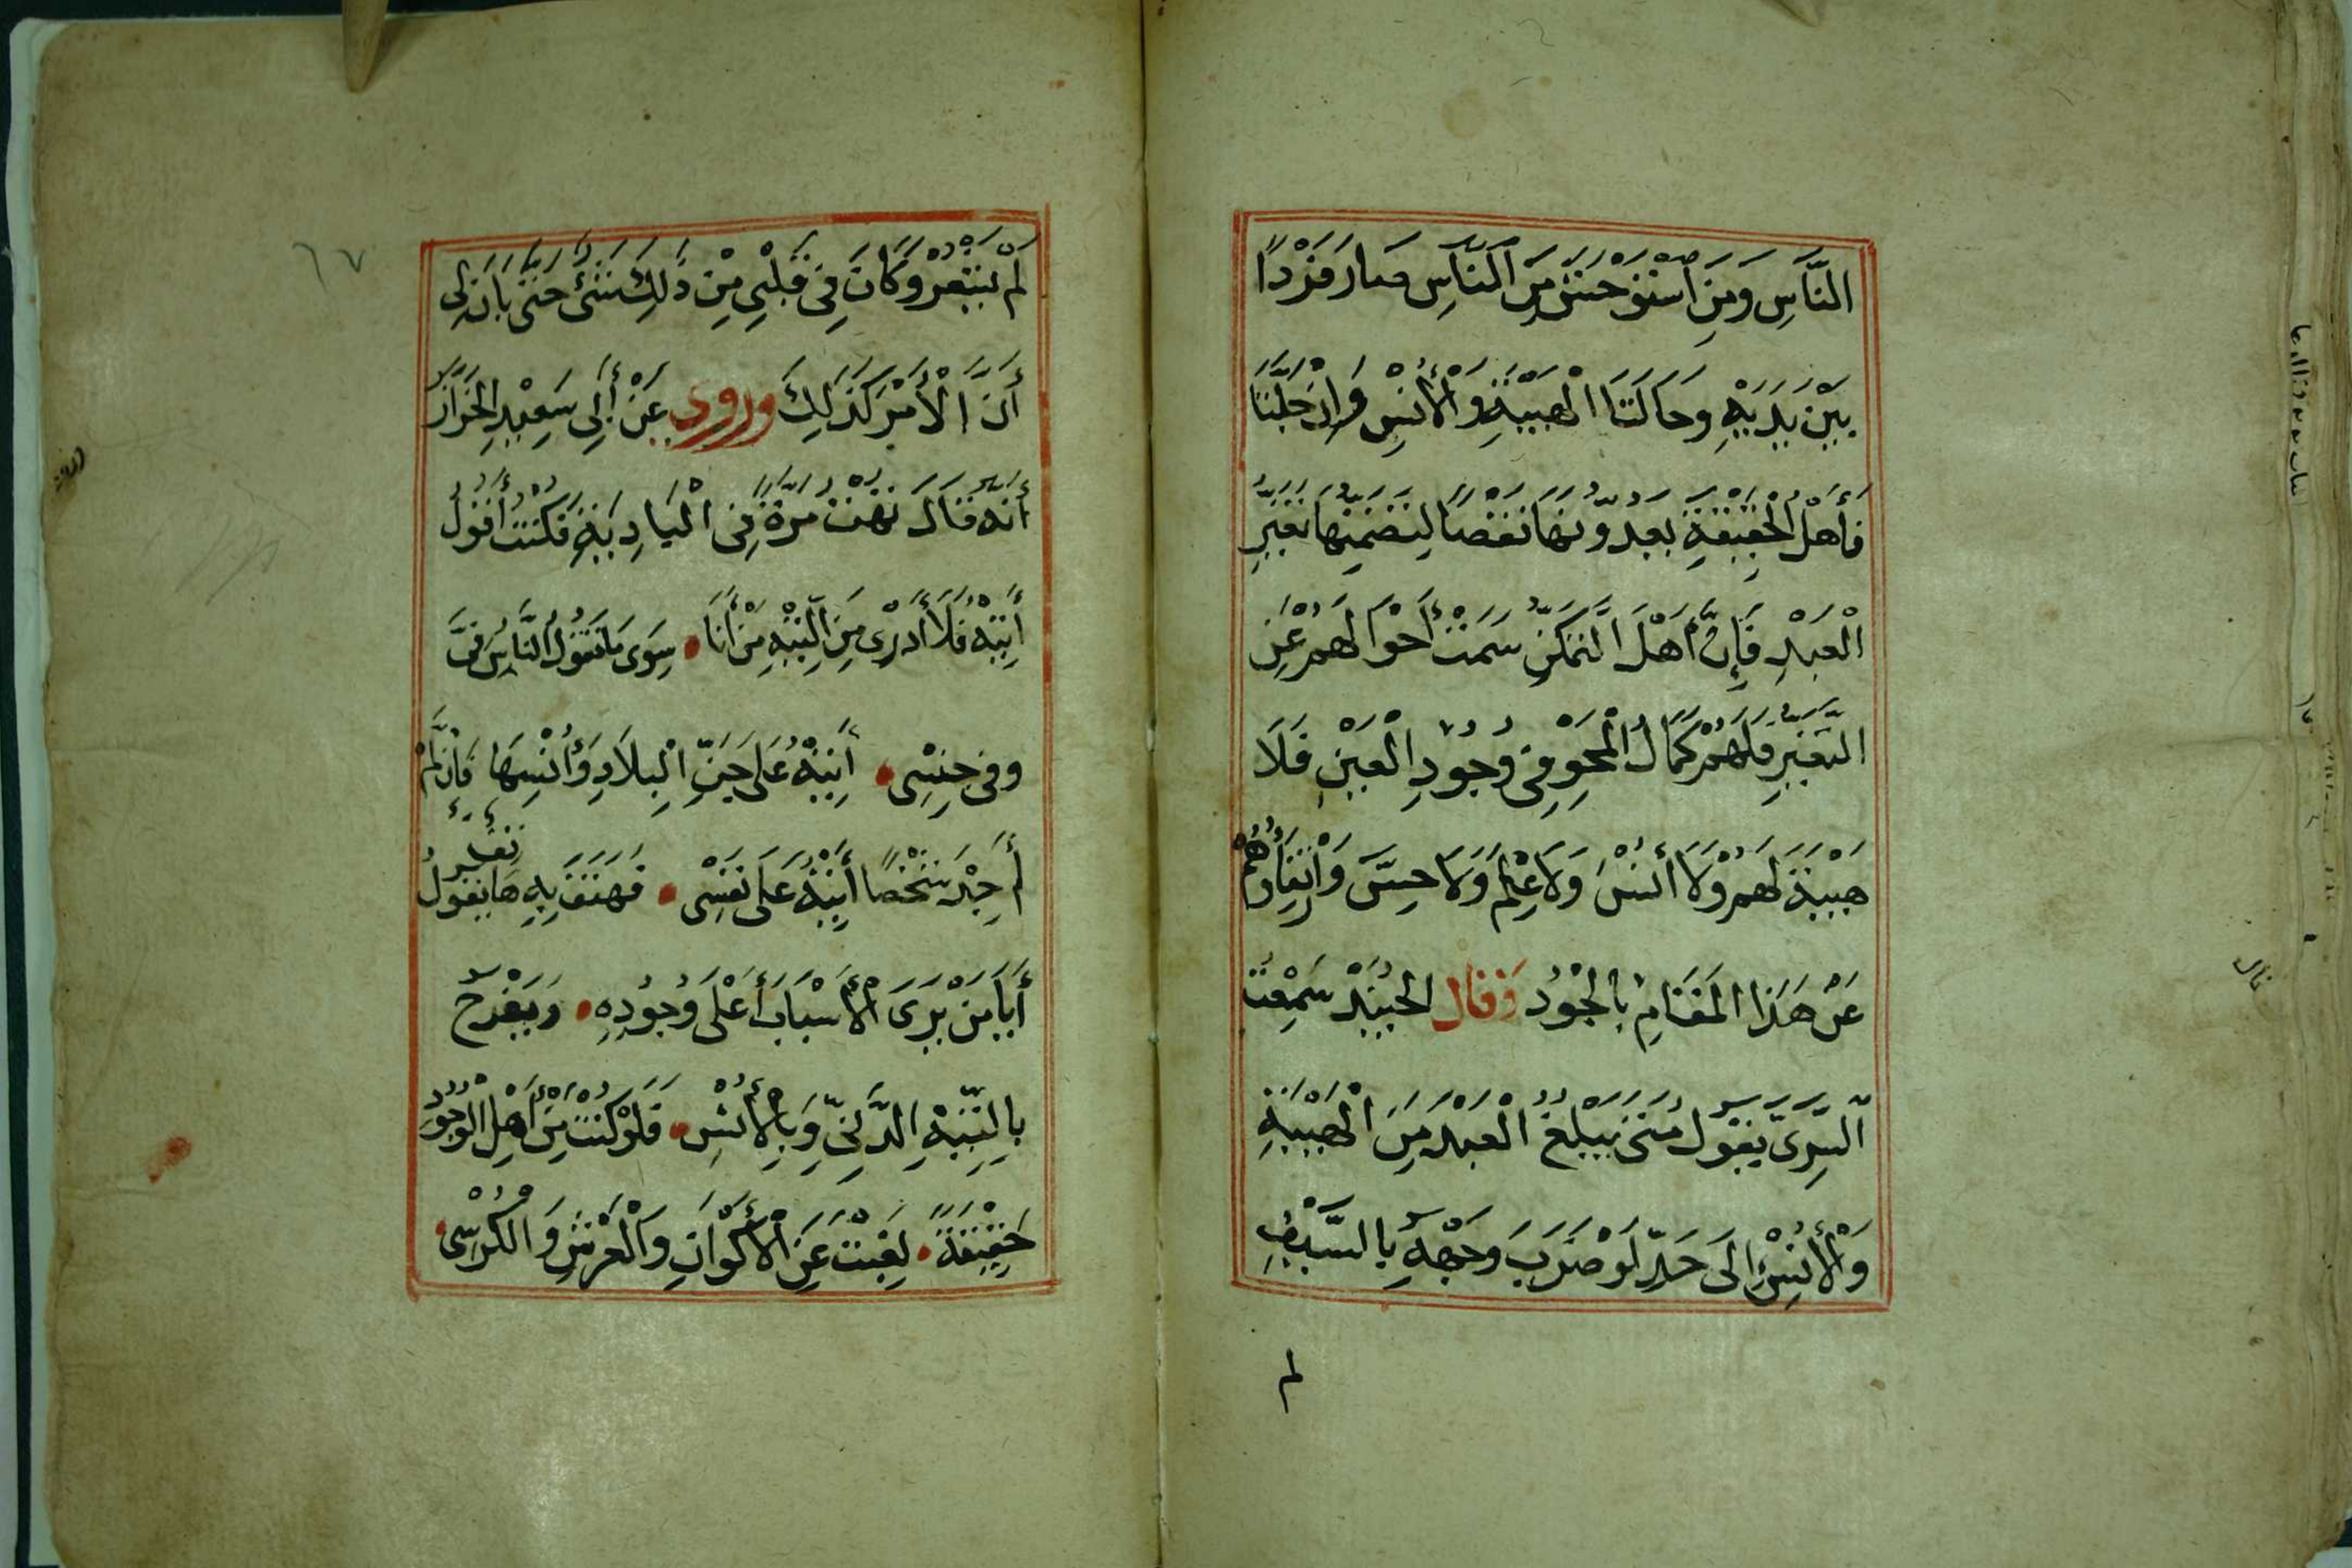 النَّاسِ وَمَنِ اسْتَوْحَشَ مِنَ النَّاسِ صَارَ فَرْدًا
بَيْنَ يَدَيْهِ وَحَالَتَا الْهَيْبَةِ وَالْأُنْسِ وَإِنْ جَلَّتَا
فَأَهْلُ الْحَقِيقَةِ يَعُدُّونَهَا نَقْصًا لِتَضَمُّنِهَا تَغَيُّرَ
الْعَبْدِ فَإِنَّ أَهْلَ التَّمَكُّنِ سَمَتْ أَحْوَالُهُمْ عَنِ
التَّغَيُّرِ فَلَهُمْ كَمَالُ الْمَحْوِ فِي وُجُودِ الْعَيْنِ فَلَا
هَيْبَةَ لَهُمْ وَلَا أُنْسَ وَلَا عِلْمَ وَلَا حِسَّ وَارْتِقَاؤُهُمْ
عَنْ هَذَا الْمَقَامِ بِالْجُودِ وَقَالَ الْجُنَيْدُ سَمِعْتُ
السَّرِيَّ يَقُولُ مَتَى يَبْلُغُ الْعَبْدُ مِنَ الْهَيْبَةِ
وَالْأُنْسِ إِلَى حَدٍّ لَوْ ضَرَبَ وَجْهَهُ بِالسَّيْفِ
لم
٦٧
لَمْ يَشْعُرْ وَكَانَ فِي قَلْبِي مِنْ ذَلِكَ شَيْءٌ حَتَّى بَانَ لِي
أَنَّ الْأَمْرَ كَذَلِكَ وروى عَنْ أَبِي سَعِيدِ الْخَرَّازِ
أَنَّهُ قَالَ تُهْتُ مَرَّةً فِي الْبَادِيَةِ فَكُنْتُ أَقُولُ
أَتِيهُ فَلَا أَدْرِي مِنَ التِّيهِ مَنْ أَنَا سِوَى مَا يَقُولُ النَّاسُ فِيَّ
وَفِي جِنْسِي أَتِيهُ عَلَى جِنِّ الْبِلَادِ وَأُنْسِهَا فَإِنْ لَمْ
أَجِدْ شَخْصًا أَتِيهُ عَلَى نَفْسِي فَهَتَفَ بِهِ هَاتِفٌ يَقُولُ
أَيَا مَنْ يَرَى الْأَسْبَابَ أَعْلَى وُجُودِهِ وَيَفْرَحُ
بِالتِّيهِ الدَّنِيِّ وَبِالْأُنْسِ فَلَوْ كُنْتَ مِنْ أَهْلِ الْوُجُودِ
حَقِيقَةً لَغِبْتَ عَنِ الْأَكْوَانِ وَالْعَرْشِ وَالْكُرْسِي